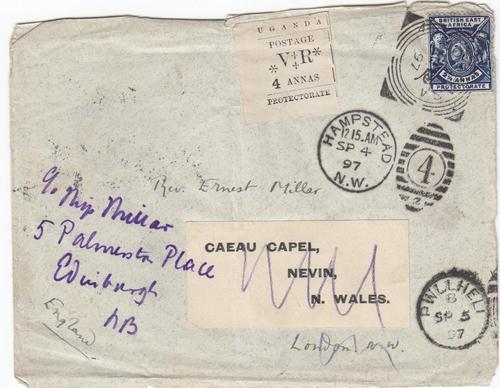 UGANDA
POSTAGE
V R
4 ANNAS
PROTECTORATE
BRITISH EAST
AFRICA
2½ ANNAS
PROTECTORATE
97
HAMPSTEAD
12 15.AM
SP 4
97
N.W.
4
Rev. Ernest Millar
c/o Miss Millar
5 Palmerston Place
Edinburgh
NB
England
CAEAU CAPEL,
NEVIN,
N. WALES.
London NW
PWLLHELI
B
SP 5
97